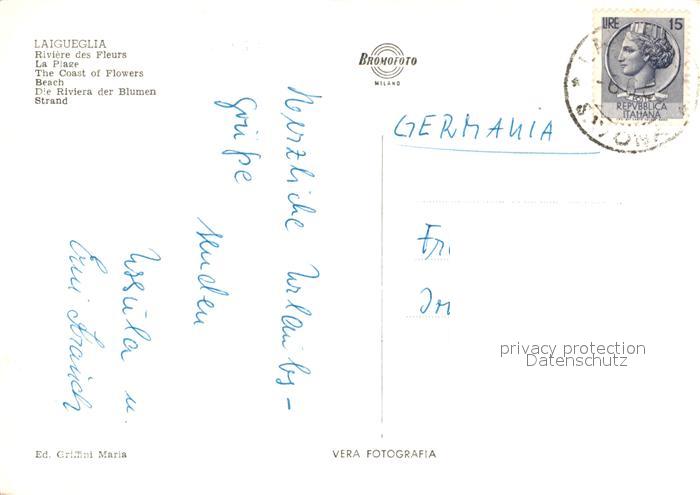 LAIGUEGLIA
Rivière des Fleurs
La Plage
The Coast of Flowers
Beach
Die Riviera der Blumen
Strand
BROMOFOTO
MILANO
LIRE 15
REPVBBLICA
ITALIANA
SAVONA
GERMANIA
Herzliche Urlaubs-
grüße
senden
Ursula u.
Erni
Fr
privacy protection
Datenschutz
Ed. Griffini Maria
VERA FOTOGRAFIA